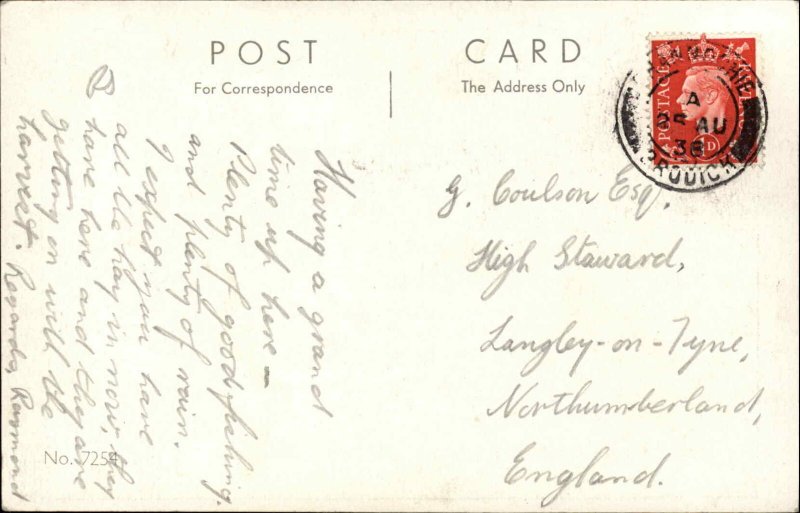 POST CARD
For Correspondence
The Address Only
POSTAGE
A
25 AU
38
BRODICK
G. Coulson Esq.
High Staward,
Langley-on-Tyne,
Northumberland,
England.
Having a grand
time up here –
Plenty of good fishing.
and plenty of rain.
I expect you have
all the hay in now, they
have here and they are
getting on with the
harvest. Regards, Raymond
No. 7254